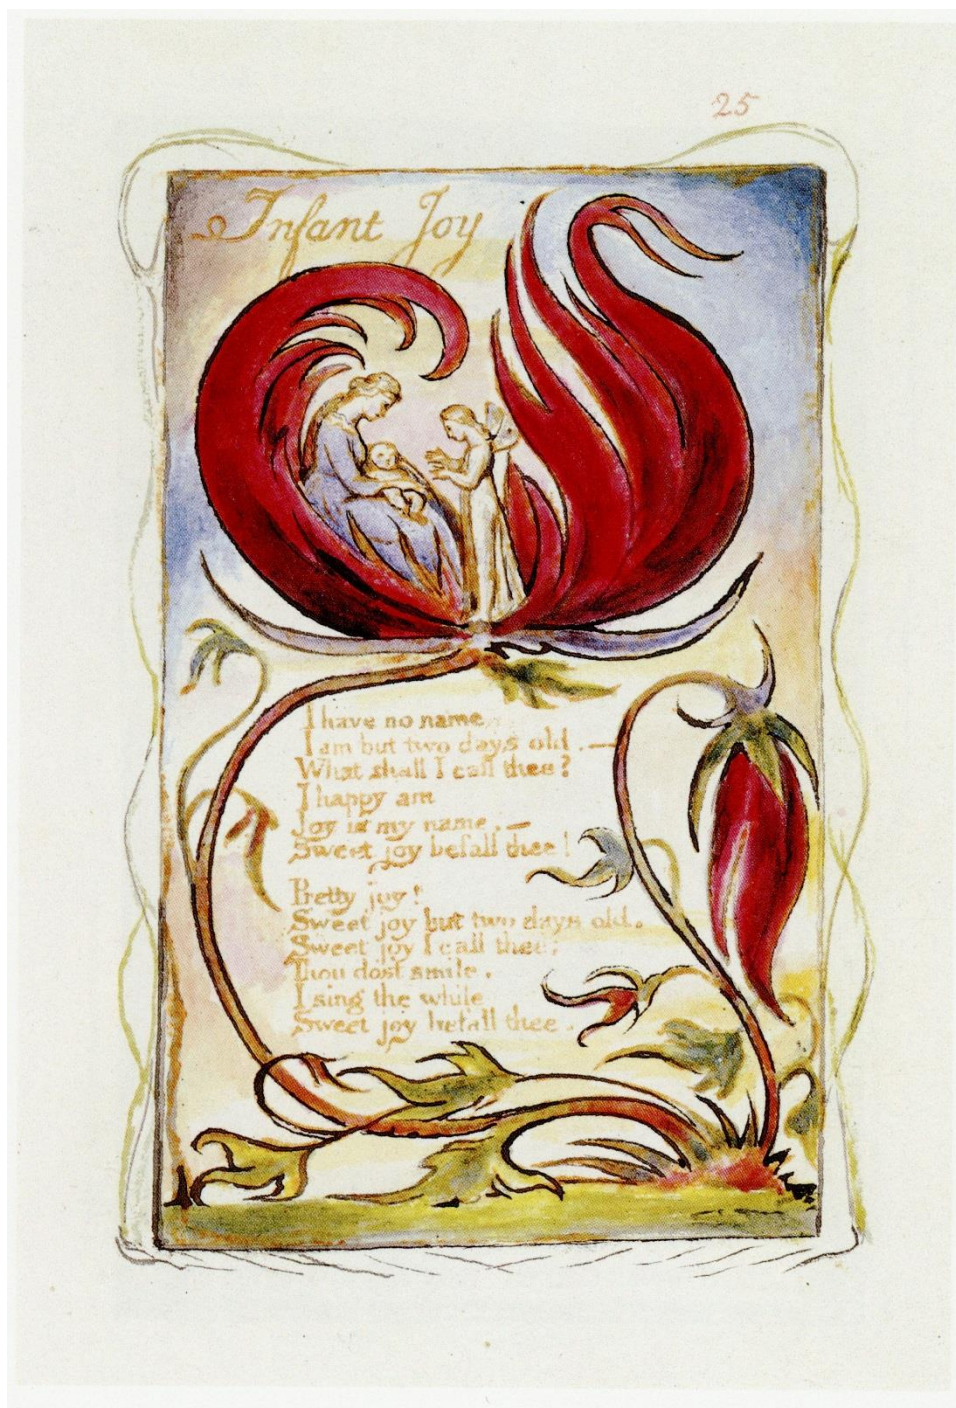 25
Infant Joy
I have no name
I am but two days old. —
What shall I call thee?
I happy am
Joy is my name. —
Sweet joy befall thee!
Pretty joy!
Sweet joy but two days old.
Sweet joy I call thee;
Thou dost smile.
I sing the while
Sweet joy befall thee.